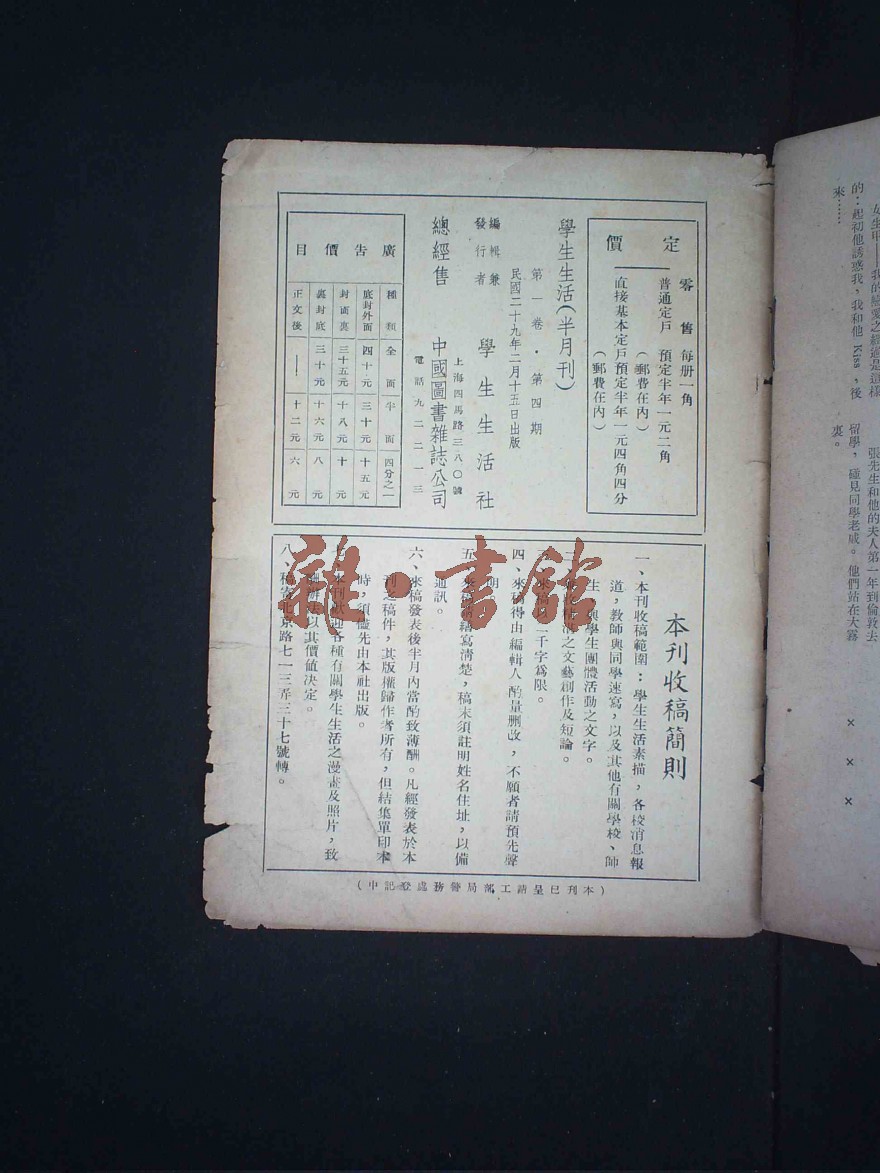 定價
零售 每册一角
普通定戶 預定半年一元二角
(郵費在內)
直接基本定戶預定半年一元四角四分
(郵費在內)
學生生活(半月刊)
第一卷・第四期
民國二十九年二月十五日出版
編輯兼
發行者
學生生活社
總經售
中國圖書雜誌公司
上海四馬路三八〇號
電話九二二一三
廣告價目
種類 全面 半面 四分之一
底封外面 四十元 三十元 十五元
封面裏 三十五元 十八元 十元
裏封底 三十元 十六元 八元
正文後 —— 十二元 六元
本刊收稿簡則
一、本刊收稿範圍:學生生活素描,各校消息報
道,教師與同學速寫,以及其他有關學校、師
生、與學生團體活動之文字。
之文藝創作及短論。
二千字爲限。
四、來稿得由編輯人酌量删改,不願者請預先聲
明。
五、來稿請繕寫清楚,稿末須註明姓名住址,以備
通訊。
六、來稿發表後半月内當酌致薄酬。凡經發表於本
刊之稿件,其版權歸作者所有,但結集單印本
時,須儘先由本社出版。
七、本刊歡迎各種有關學生生活之漫畫及照片,致
酬辦法以其價值决定。
八、稿寄北京路七一三弄三十七號轉。
(本刊已呈請工部局警務處登記中)
雜·書館
女生甲——我的戀愛之經過是這樣
的:起初他誘惑我,我和他Kiss,後
來……
張先生和他的夫人第一年到倫敦去
留學,碰見同學老成。他們站在大霧
裏。
× × ×